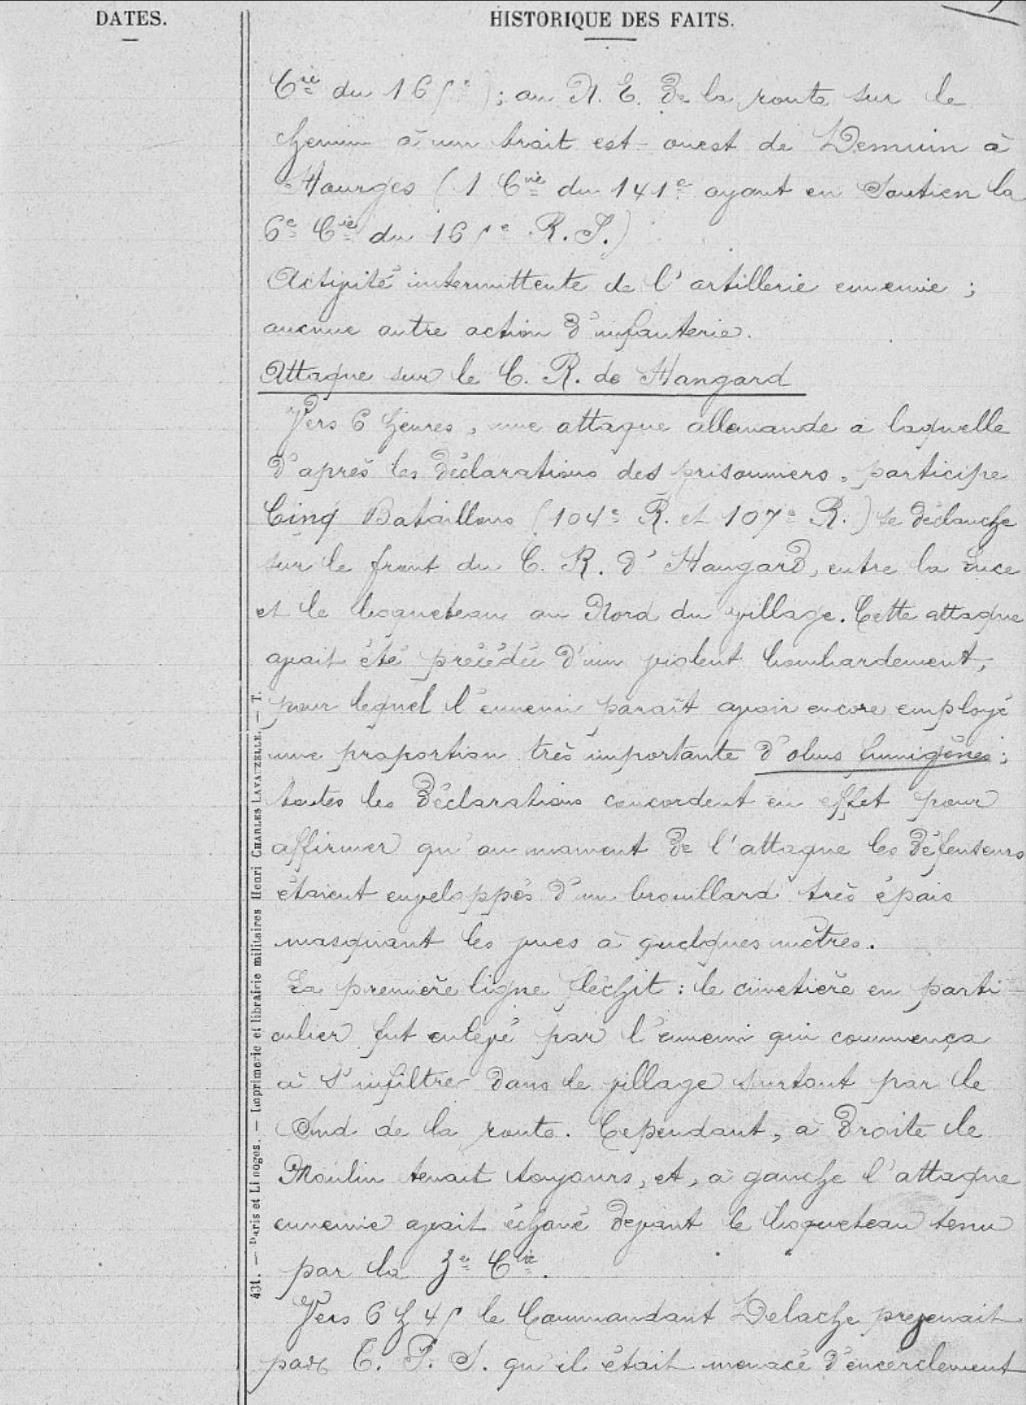 DATES.
HISTORIQUE DES FAITS.
Cie du 165e) ; au N. E. de la route sur le
chemin à un trait est-ouest de Demuin à
Hourges (1 Cie du 141e ayant en soutien la
6e Cie du 165e R.I.)
Activité intermittente de l'artillerie ennemie ;
aucune autre action d'infanterie.
Attaque sur le C. R. de Hangard
Vers 6 heures, une attaque allemande à laquelle
d'après les déclarations des prisonniers, participe
Cinq Bataillons (104e R. et 107e R.) se déclanche
sur le front du C. R. d'Hangard, entre la Luce
et le boqueteau au Nord du village. Cette attaque
avait été précédée d'un violent bombardement,
pour lequel l'ennemi paraît avoir encore employé
une proportion très importante d'obus fumigènes ;
toutes les déclarations concordent en effet pour
affirmer qu'au moment de l'attaque les défenseurs
étaient enveloppés d'un brouillard très épais
masquant les vues à quelques mètres.
La première ligne fléchit : le cimetière en parti-
culier fut enlevé par l'ennemi qui commença
à s'infiltrer dans le village surtout par le
Sud de la route. Cependant, à droite le
Moulin tenait toujours, et, à gauche l'attaque
ennemie avait échoué devant le boqueteau tenu
par la 3e Cie.
Vers 6 h 45 le Commandant Delache prévenait
par T. P. S. qu'il était menacé d'encerclement
431. — Paris et Limoges. — Imprimerie et librairie militaires Henri CHARLES-LAVAUZELLE. — T.